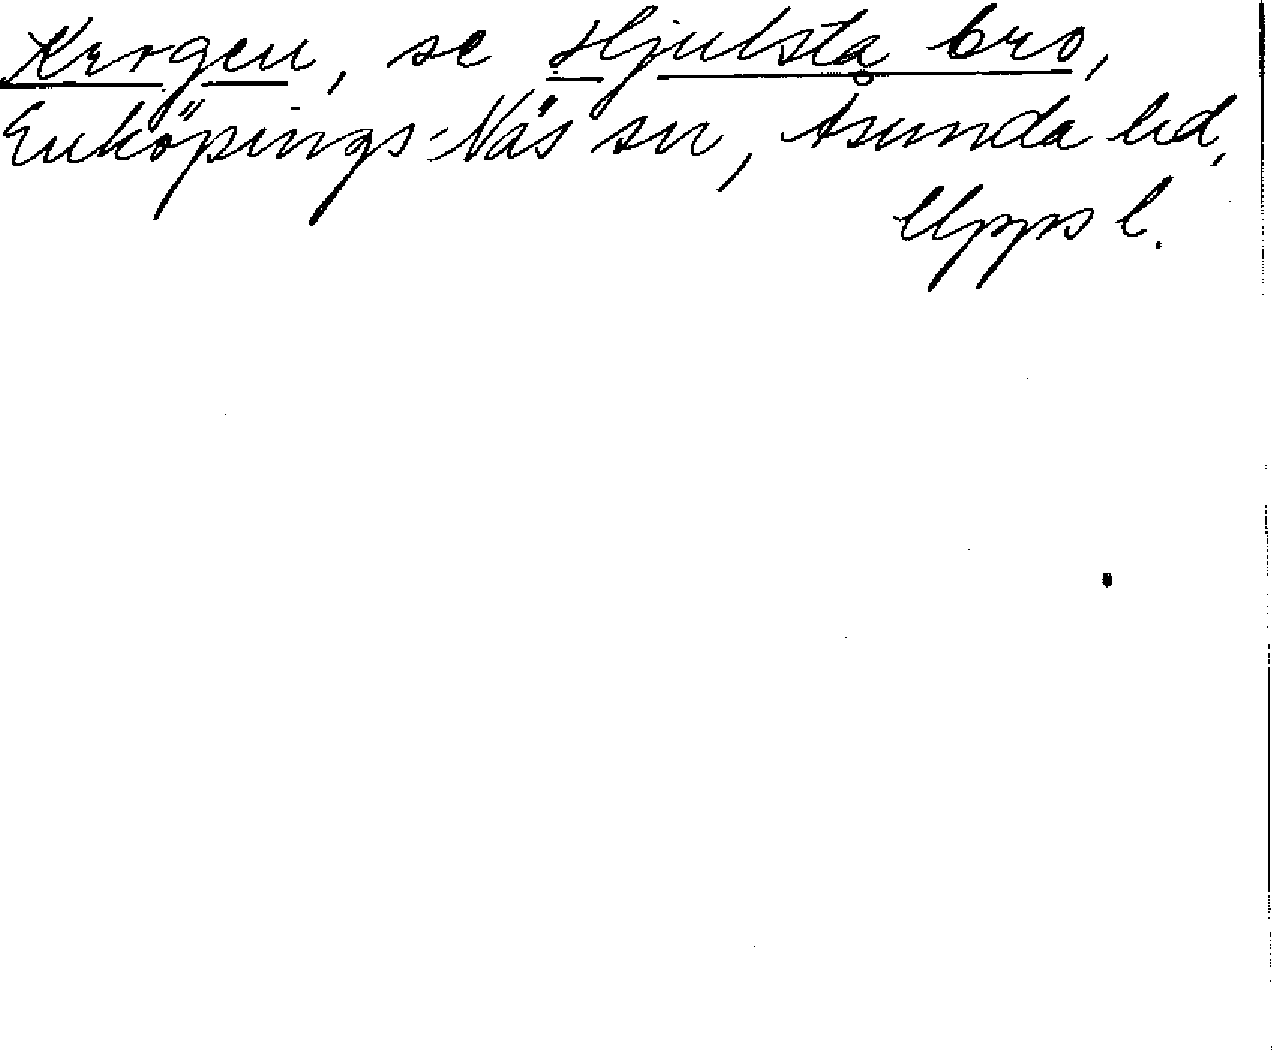 Krogen, se Hjulsta bro,
Enköpings-Näs sn, Åsunda hd,
Upps l.